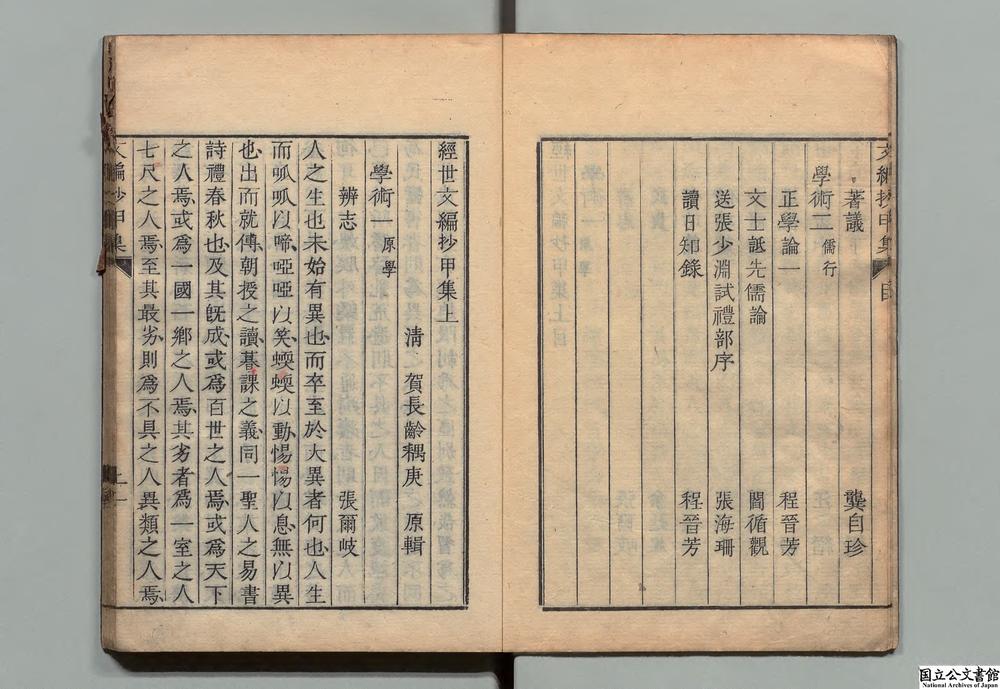 著議 龔自珍
學術二 儒行
正學論一 程晉芳
文士詆先儒論 閻循觀
送張少淵試禮部序 張海珊
讀日知錄 程晉芳
經世文編抄甲集上
清 賀長齡耦庚 原輯
學術一 原學
辨志 張爾岐
人之生也未始有異也而卒至於大異者何也人生
而呱呱以啼啞啞以笑蝡蝡以動惕惕以息無以異
也出而就傅朝授之讀暮課之義同一聖人之易書
詩禮春秋也及其旣成或爲百世之人焉或爲天下
之人焉或爲一國一鄉之人焉其劣者爲一室之人
七尺之人焉至其最劣則爲不具之人異類之人焉
文編抄甲集 上 一
国立公文書館
National Archives of Japan